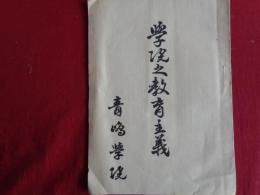 學院之教育主義
青鳴學院